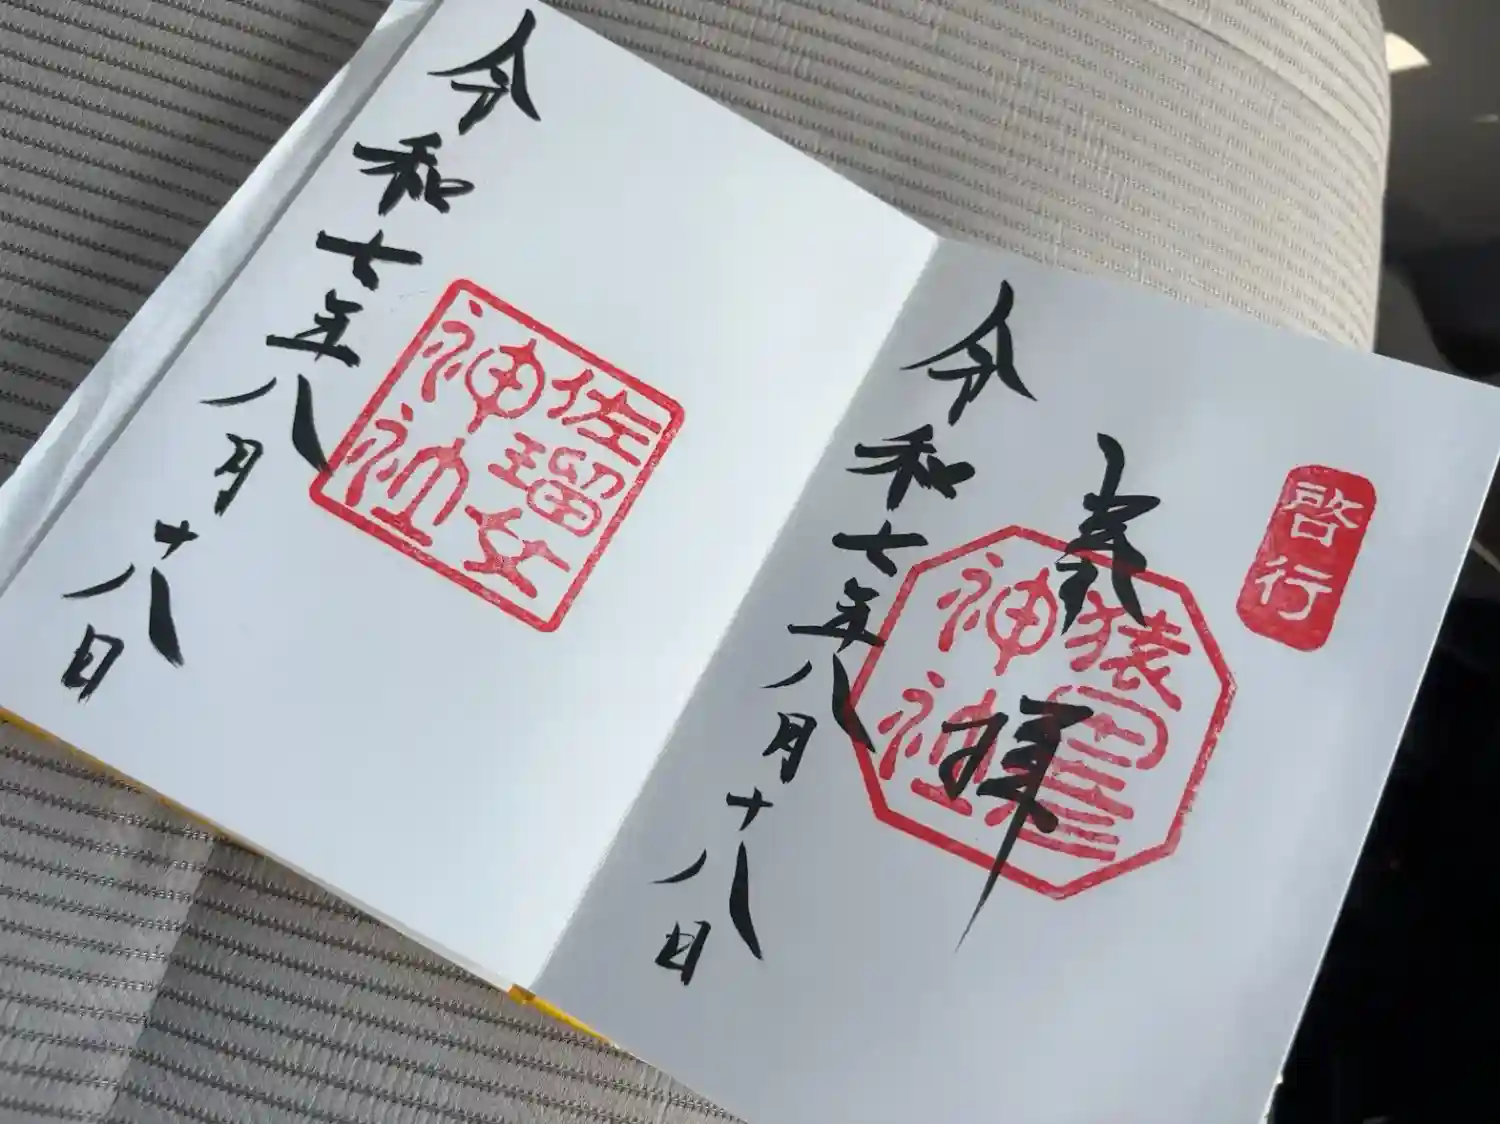 啓行
奉拝
猿田彦
神社
令和七年八月十八日
佐瑠女
神社
令和七年八月十八日